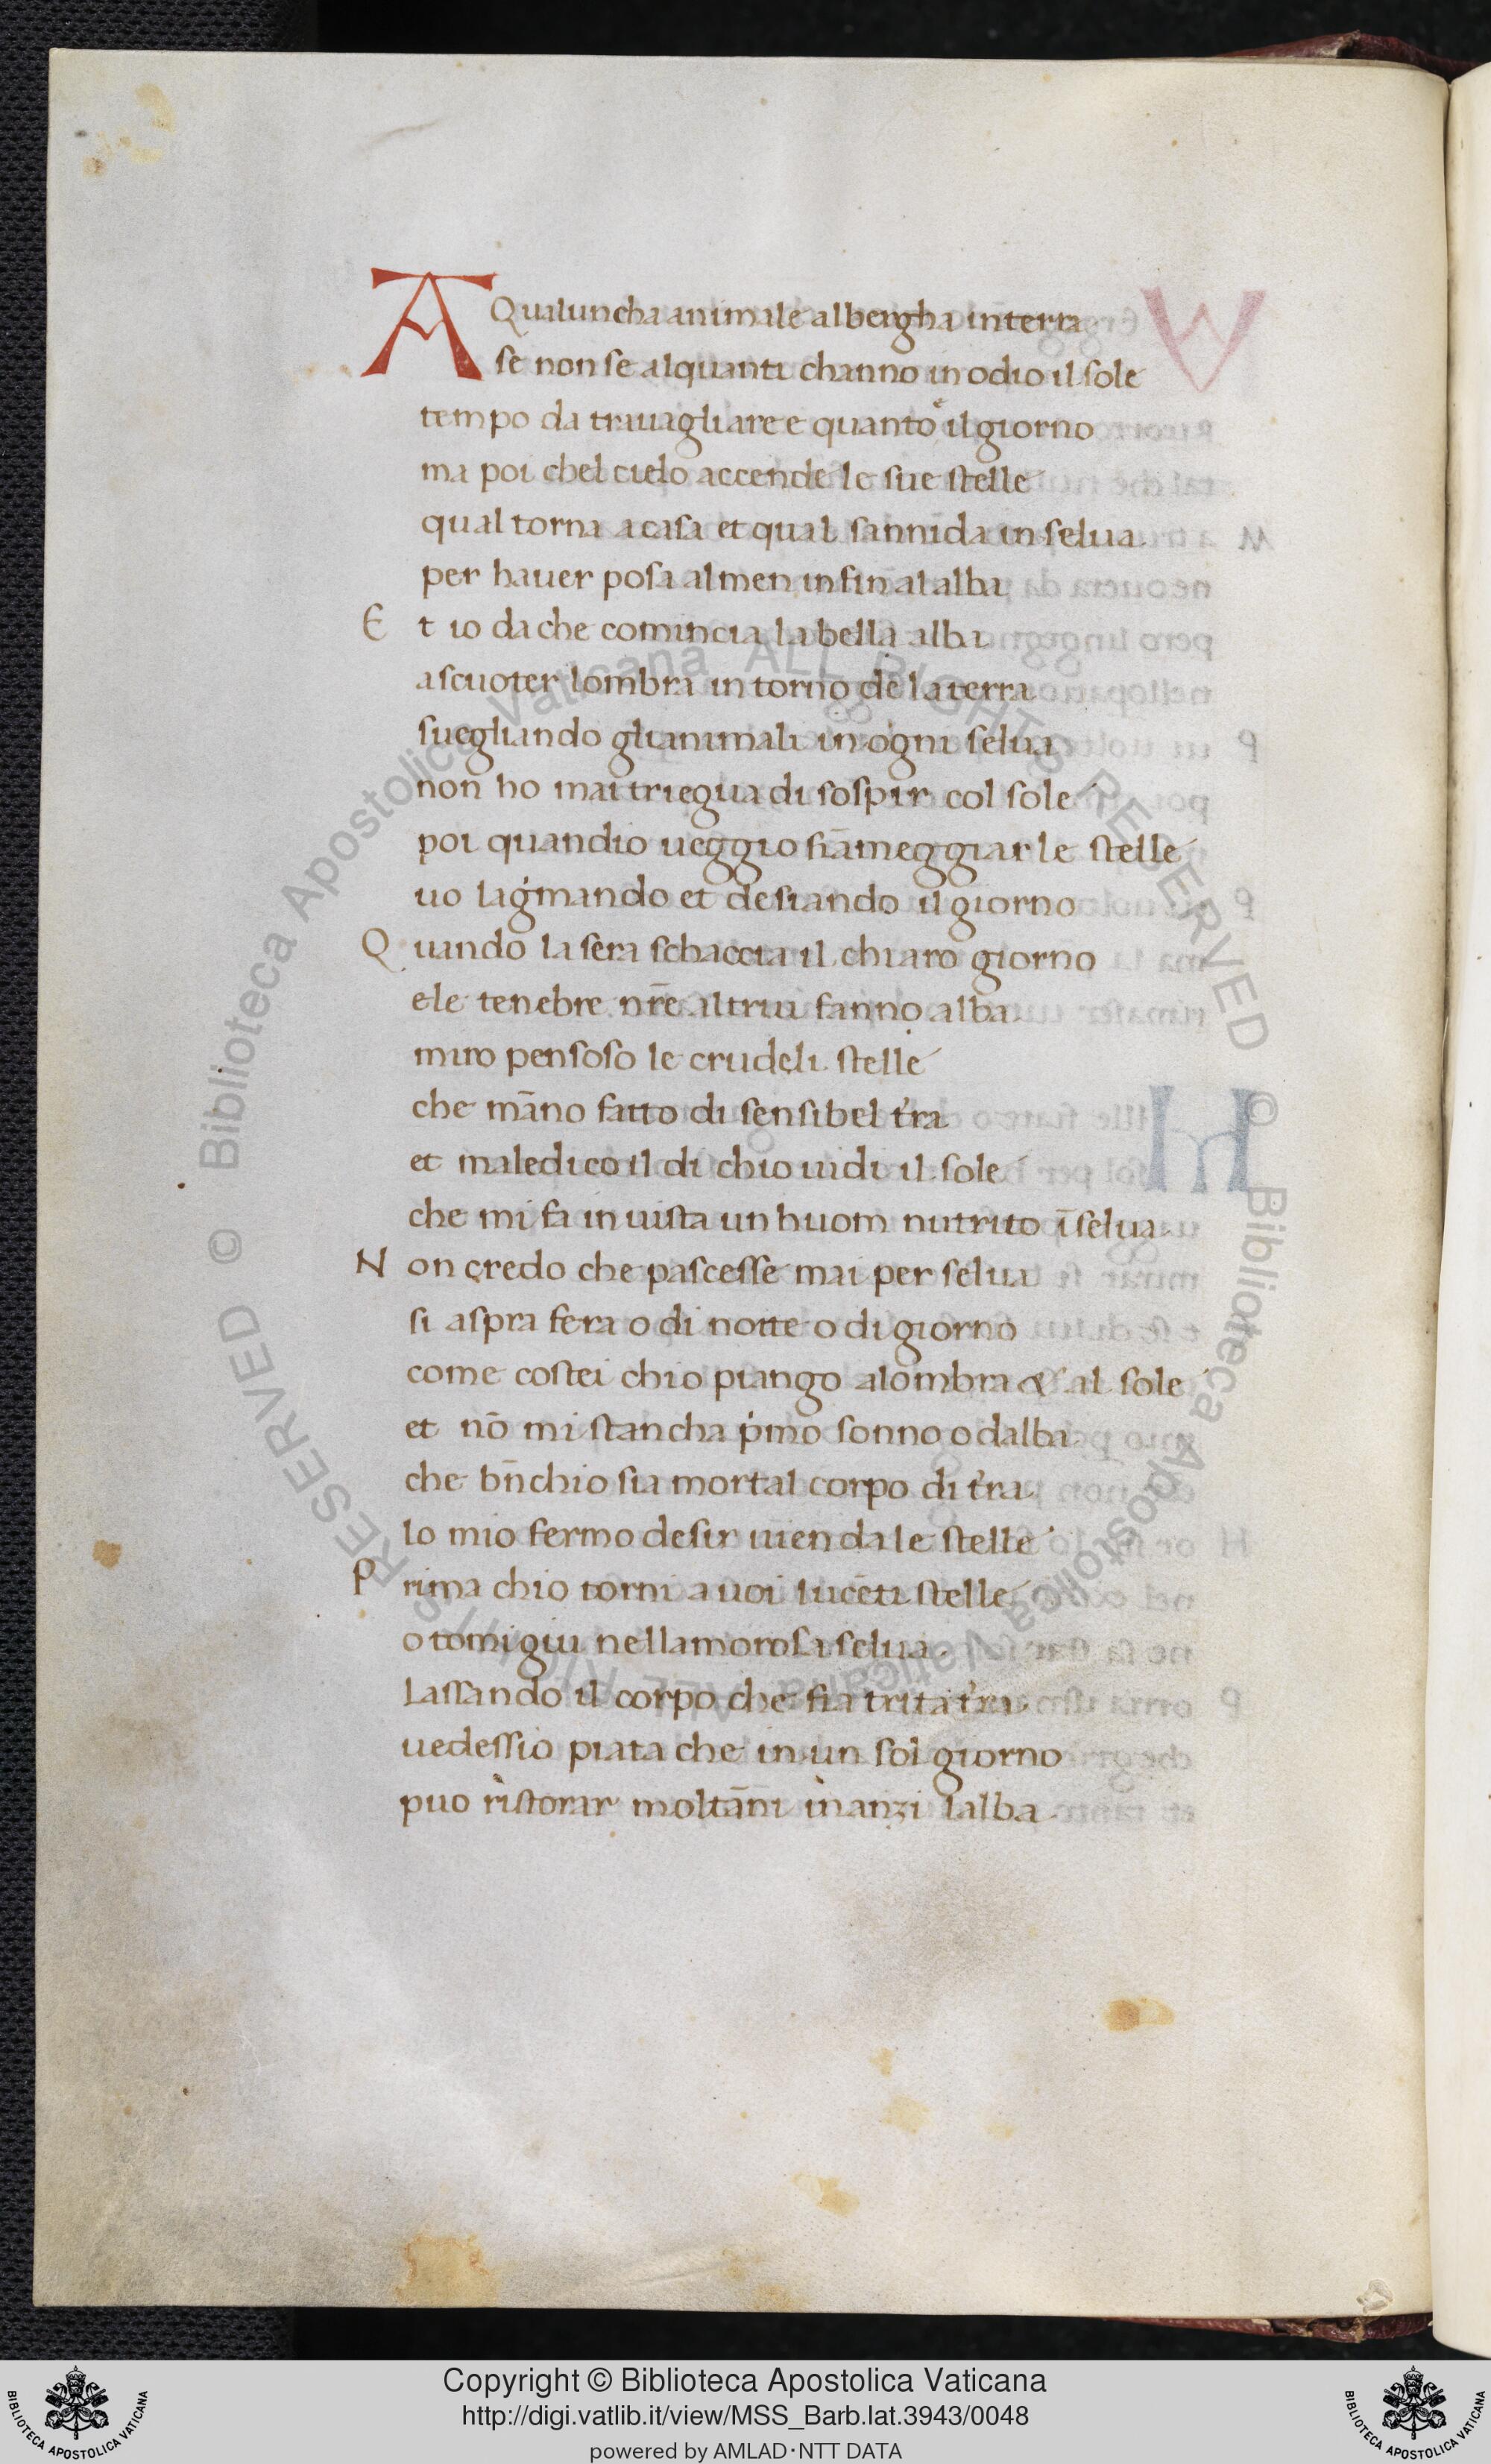 A Qualuncha animale albergha in terra
se non se alquanti channo in odio il sole
tempo da trauagliare e quanto é il giorno
ma poi chel cielo accende le sue stelle
qual torna a casa et qual sannida in selua
per hauer posa almen infin alalba
E t io da che comincia la bella alba
a scuoter lombra in torno de la terra
suegliando glianimali in ogni selua
non ho mai triegua di sospir col sole
poi quandio ueggio fiāmeggiar le stelle
uo lagmando et desiando il giorno
Q uando la sera schaccia il chiaro giorno
e le tenebre nr̄e altrui fanno alba
miro pensoso le crudeli stelle
che māno fatto di sensibel t'ra
et maledico il di chio uidi il sole
che mi fa in uista un huom nutrito ī selua
N on credo che pascesse mai per selua
si aspra fera o di notte o di giorno
come costei chio piango alombra & al sole
et nō mi stancha pmo sonno o dalba
che bn̄chio sia mortal corpo di t'ra
lo mio fermo desir uien da le stelle
P rima chio torni a uoi lucēti stelle
o tomi giu nellamorosa selua
Lassando il corpo che fia trita t'ra
uedessio piata che in un sol giorno
puo ristorar moltāni inanzi lalba
© Biblioteca Apostolica Vaticana ALL RIGHTS RESERVED © Biblioteca Apostolica Vaticana ALL RIGHTS RESERVED
BIBLIOTECA APOSTOLICA VATICANA
Copyright © Biblioteca Apostolica Vaticana
http://digi.vatlib.it/view/MSS_Barb.lat.3943/0048
powered by AMLAD·NTT DATA
BIBLIOTECA APOSTOLICA VATICANA